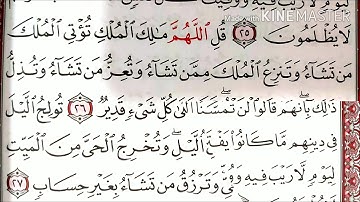 لِيَوْمٍ لَّا رَيْبَ فِيهِ وَوُفِّيَتْ
Made with KINEMASTER
لَا يُظْلَمُونَ ٢٥ قُلِ ٱللَّهُمَّ مَٰلِكَ ٱلْمُلْكِ تُؤْتِى ٱلْمُلْكَ
مَن تَشَآءُ وَتَنزِعُ ٱلْمُلْكَ مِمَّن تَشَآءُ وَتُعِزُّ مَن تَشَآءُ وَتُذِلُّ
ذَٰلِكَ بِأَنَّهُمْ قَالُوا۟ لَن تَمَسَّنَا كُلِّ شَىْءٍ قَدِيرٌ ٢٦ تُولِجُ ٱلَّيْلَ
فِى دِينِهِم مَّا كَانُوا۟ ٱلَّيْلِ وَتُخْرِجُ ٱلْحَىَّ مِنَ ٱلْمَيِّتِ
لِيَوْمٍ لَّا رَيْبَ فِيهِ وَتَرْزُقُ مَن تَشَآءُ بِغَيْرِ حِسَابٍ ٢٧